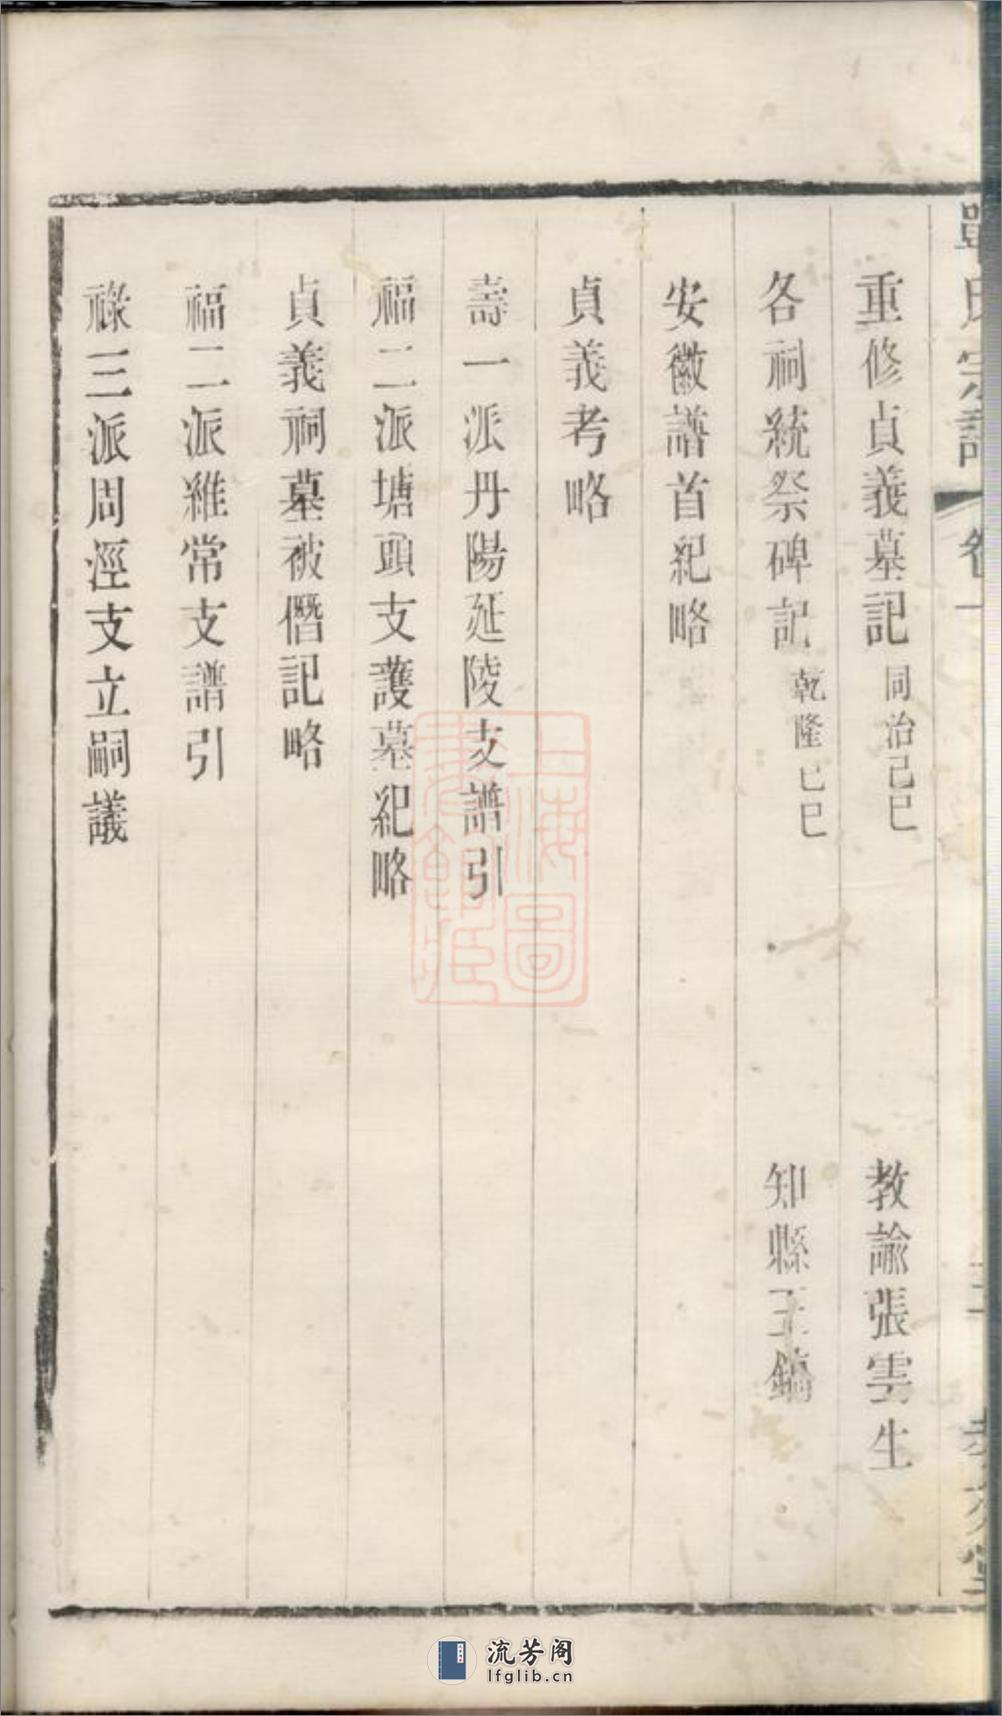 氏宗譜 卷一
重修貞義墓記 同治己巳 教諭張雲生
各祠統祭碑記 乾隆己巳 知縣王鎬
安徽譜首紀略
貞義考略
壽一派丹陽延陵支譜引
福二派塘頭支護墓紀略
貞義祠墓被僭記略
福二派維常支譜引
祿三派周涇支立嗣議
上海圖書館藏
流芳阁
lfglib.cn